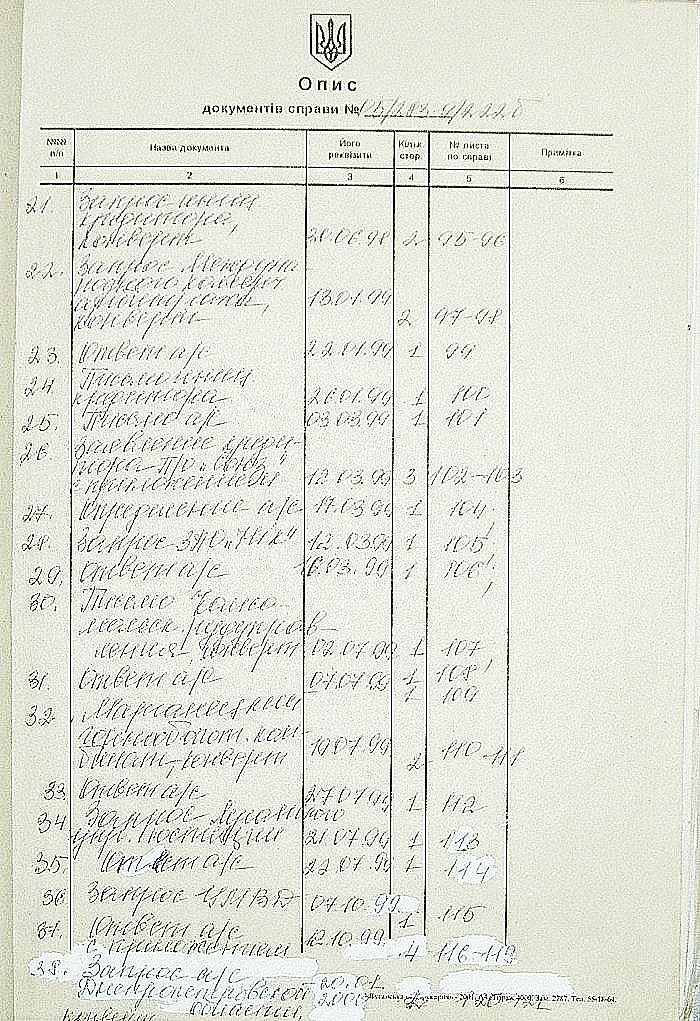 Опис
документів справи № 05/283-9/222б
№№ п/п
Назва документа
Його реквізити
Кільк. стор.
№ листа по справі
Примітка
1 2 3 4 5 6
21. Запрос
кредитора,
конверт 28.06.98 2 95-96
22. Запрос Междуна-
родного
конверт 13.01.99 2 97-98
23. Ответ а/с 22.01.99 1 99
24. Письмо
кредитора 26.01.99 1 100
25. Письмо а/с 03.03.99 1 101
26. Заявление
П/О „Союз"
с приложением 12.03.99 3 102-103
27. Определение а/с 17.03.99 1 104
28. Запрос ЗАО „Нік" 12.03.99 1 105
29. Ответ а/с 16.03.99 1 106
30. Письмо
конверт 02.07.99 1 107
31. Ответ а/с 07.07.99 1 108
1 109
32. Марганецкий
горнообогат. ком-
бинат, конверт 19.07.99 2 110-111
33. Ответ а/с 27.07.99 1 112
34. Запрос Луганского
упр. юстиции 21.07.99 1 113
35. Ответ а/с 22.07.99 1 114
36. Запрос УМВД 07.10.99 1 115
37. Ответ а/с
с приложением 12.10.99 4 116-119
38. Запрос а/с
Днепропетровской 20.01.
области, 2000
конверт